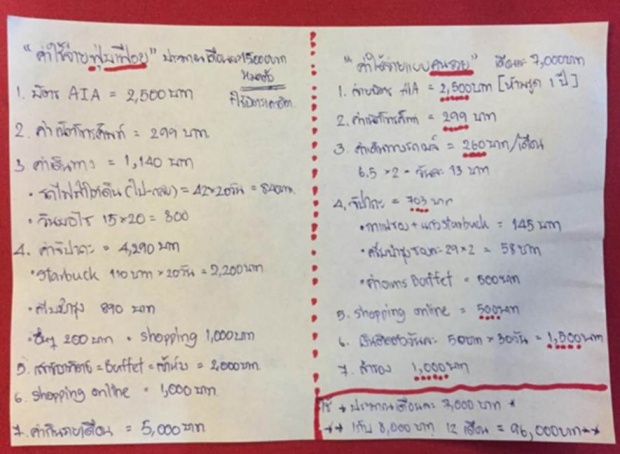 "ค่าใช้จ่ายฟุ่มเฟือย" ประมาณเดือนละ 15000 บาท
หมดตัว
1. บัตร AIA = 2,500 บาท ใช้บัตรเครดิต
2. ค่าโทรศัพท์ = 299 บาท
3 ค่าเดินทาง = 1,140 บาท
• รถไฟฟ้าใต้ดิน (ไป-กลับ) = 42×20วัน = 840บาท
• วินมอไซ 15×20 = 300
4. ค่าจิปาถะ = 4,290 บาท
• Starbuck 110 บาท × 20วัน = 2,200บาท
• ครีมบำรุง 890 บาท
• อื่นๆ 200 บาท • shopping 1,000บาท
5. = Buffet = = 2,000บาท
6. shopping online = 1,000 บาท
7. ค่ากินรายเดือน = 5,000 บาท
"ค่าใช้จ่ายแบบคนรวย" เดือนละ 7,000บาท
1. จ่ายบัตร AIA = 2,500บาท [ห้ามรูด 1 ปี]
2. ค่าโทรศัพท์ = 299 บาท
3. ค่าเดินทางรถเมล์ = 260บาท/เดือน
6.5 × 2 = วันละ 13 บาท
4. จิปาถะ = 703 บาท
• กาแฟซอง + แก้วstarbuck = 145 บาท
• ครีมบำรุงซองละ 29×2 = 58บาท
• ค่าอาหาร Buffet = 500บาท
5. shopping online = 500บาท
6. เงินติดตัววันละ 50บาท × 30วัน = 1,500บาท
7. สำรอง 1,000บาท
ประมาณเดือนละ 7,000 บาท *
** เก็บ 8,000 บาท 12 เดือน = 96,000บาท **